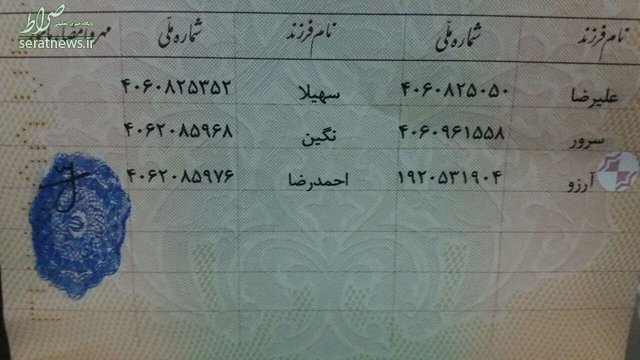 صراط
پایگاه خبری تحلیلی
seratnews.ir
نام فرزند شماره ملّی نام فرزند شماره ملّی
علیرضا ۴۰۶۰۸۲۵۰۵۰ سهیلا ۴۰۶۰۸۲۵۳۵۲
سرور ۴۰۶۰۹۶۱۵۵۸ نگین ۴۰۶۲۰۸۵۹۶۸
آرزو ۱۹۲۰۵۳۱۹۰۴ احمدرضا ۴۰۶۲۰۸۵۹۷۶